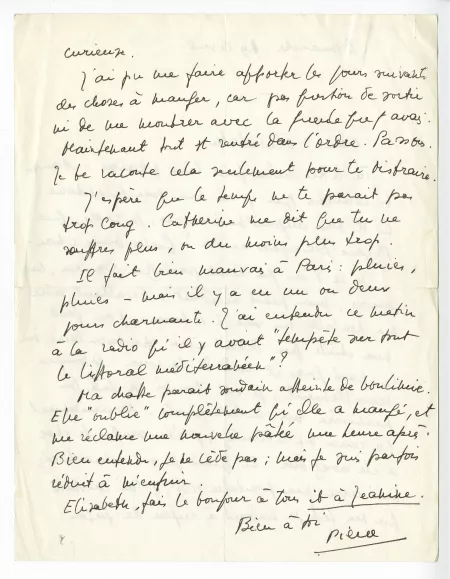 curieuse.
J'ai pu me faire apporter les jours suivants
des choses à manger, car pas question de sortir
ni de me montrer avec la gueule que j'avais.
Maintenant tout est rentré dans l'ordre. Passons.
Je te raconte cela seulement pour te distraire.
J'espère que le temps ne te parait pas
trop long. Catherine me dit que tu ne
souffres plus, ou du moins plus trop.
Il fait bien mauvais à Paris : pluies,
pluies – mais il y a eu un ou deux
jours charmants. J'ai entendu ce matin
à la radio qu'il y avait "tempête sur tout
le littoral méditerranéen"?
Ma chatte parait soudain atteinte de boulimie.
Elle "oublie" complètement qu'elle a mangé, et
me réclame une nouvelle pâtée une heure après.
Bien entendu, je ne cède pas ; mais je suis parfois
réduit à m'enfuir.
Elizabeth, fais le bonjour à tous et à Jeanine.
Bien à toi
Pierre